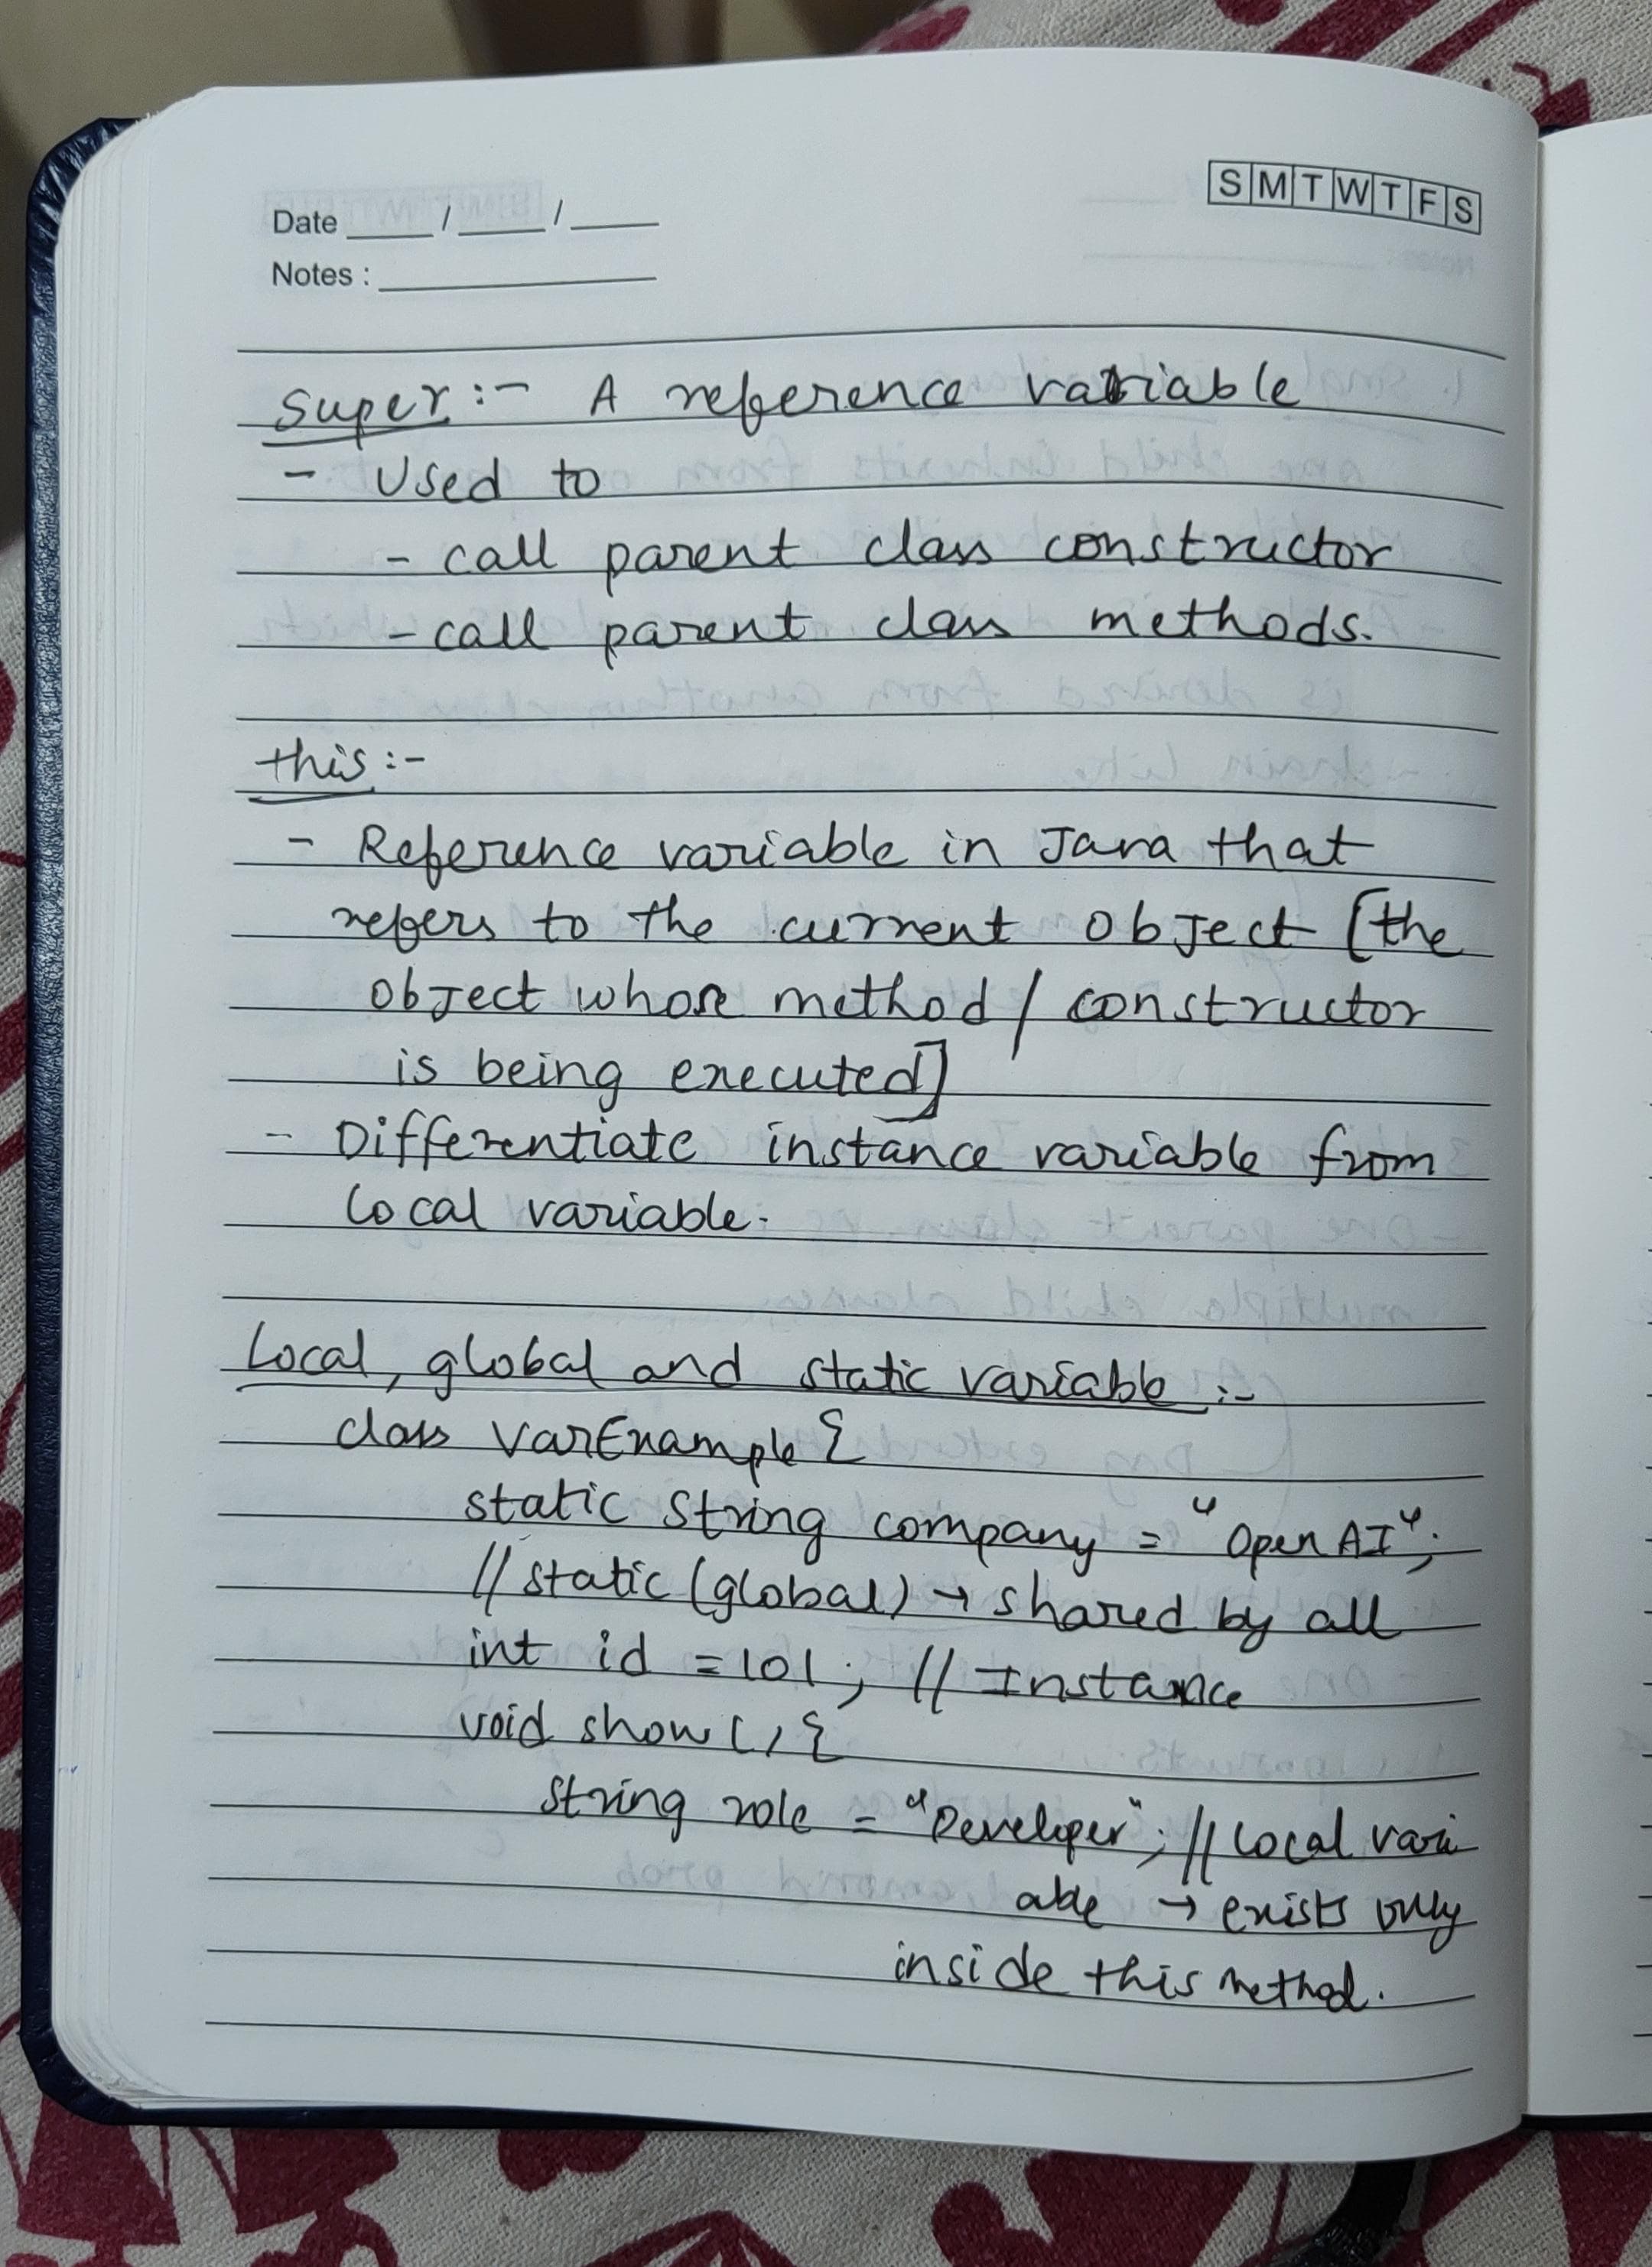 S M T W T F S
Date ____ / ____ / ____
Notes : ____
Super :- A reference variable
- Used to
- call parent class constructor
- call parent class methods.
this :-
- Reference variable in Java that
refers to the current object [the
object whose method / constructor
is being executed]
- Differentiate instance variable from
local variable.
Local, global and static variable :-
class VarExample {
static String company = "OpenAI";
// static (global) → shared by all
int id = 101; // Instance
void show() {
String role = "Developer"; // local vari
able → exists only
inside this method.